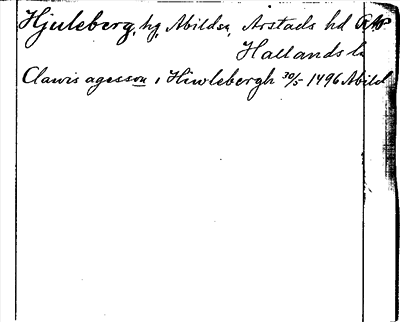 Hjuleberg, hg, Abildsn, Årstads hd
Hallands l.
Clawis agesson i Hiwlebergh 30/5 1496 Abild